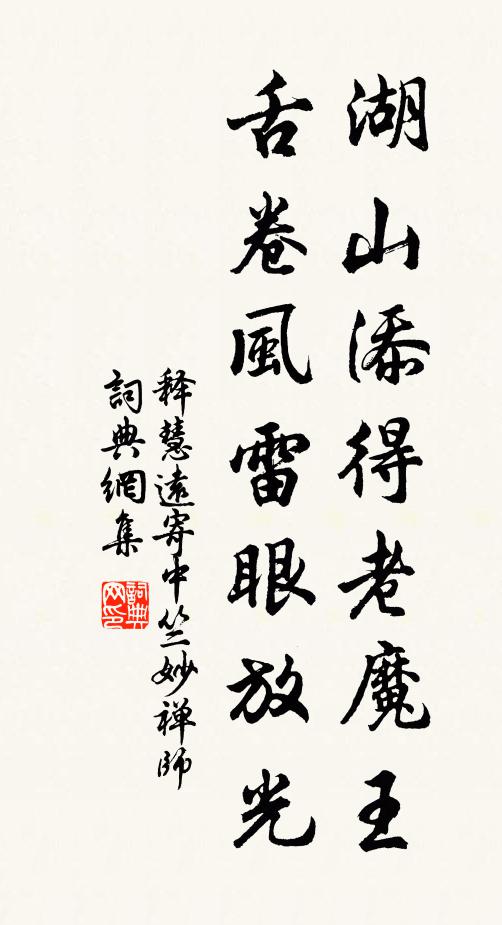 湖山添得老魔王
舌卷風雷眼放光
释慧遠寄中竺妙禅師
詞典網集
詞典网印